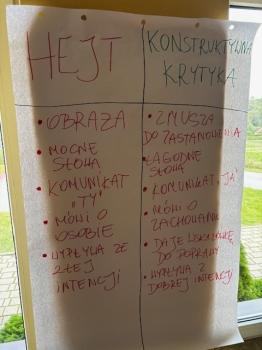 HEJT
• OBRAŻA
• MOCNE
SŁOWA
• KOMUNIKAT
"TY"
• MÓWI O
OSOBIE
• WYPŁYWA ZE
ZŁEJ
INTENCJI
KONSTRUKTYWNA
KRYTYKA
• ZMUSZA
DO ZASTANOWIENIA
• ŁAGODNE
SŁOWA
• KOMUNIKAT "JA"
• MÓWI O
ZACHOWANIU
• DAJE WSKAZÓWKĘ
DO POPRAWY
• WYPŁYWA Z
DOBREJ INTENCJI